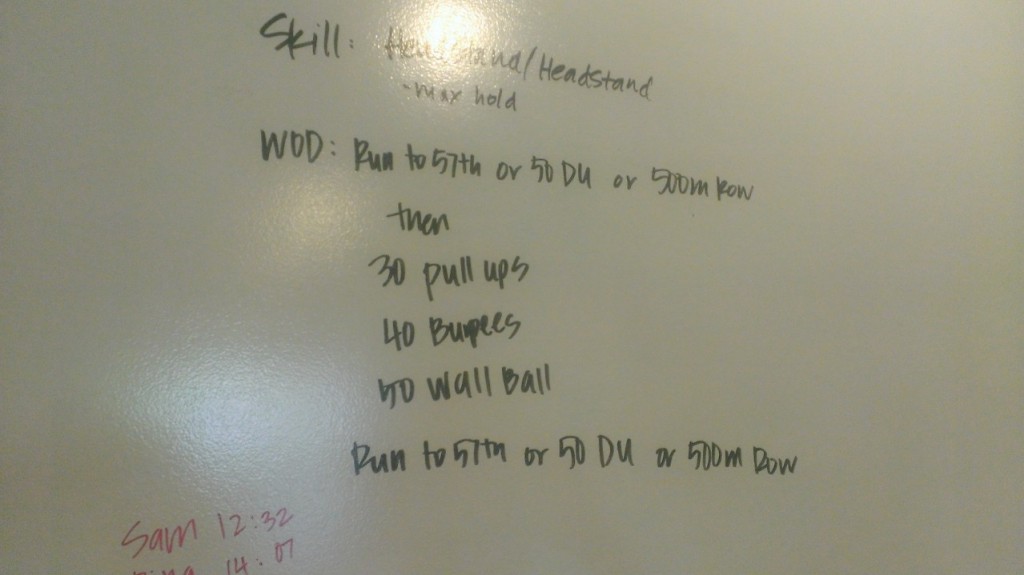 Skill: Handstand/Headstand
-max hold
WOD: Run to 57th or 50 DU or 500m Row
then
30 pull ups
40 Burpees
50 Wall Ball
Run to 57th or 50 DU or 500m Row
Sam 12:32
14:07